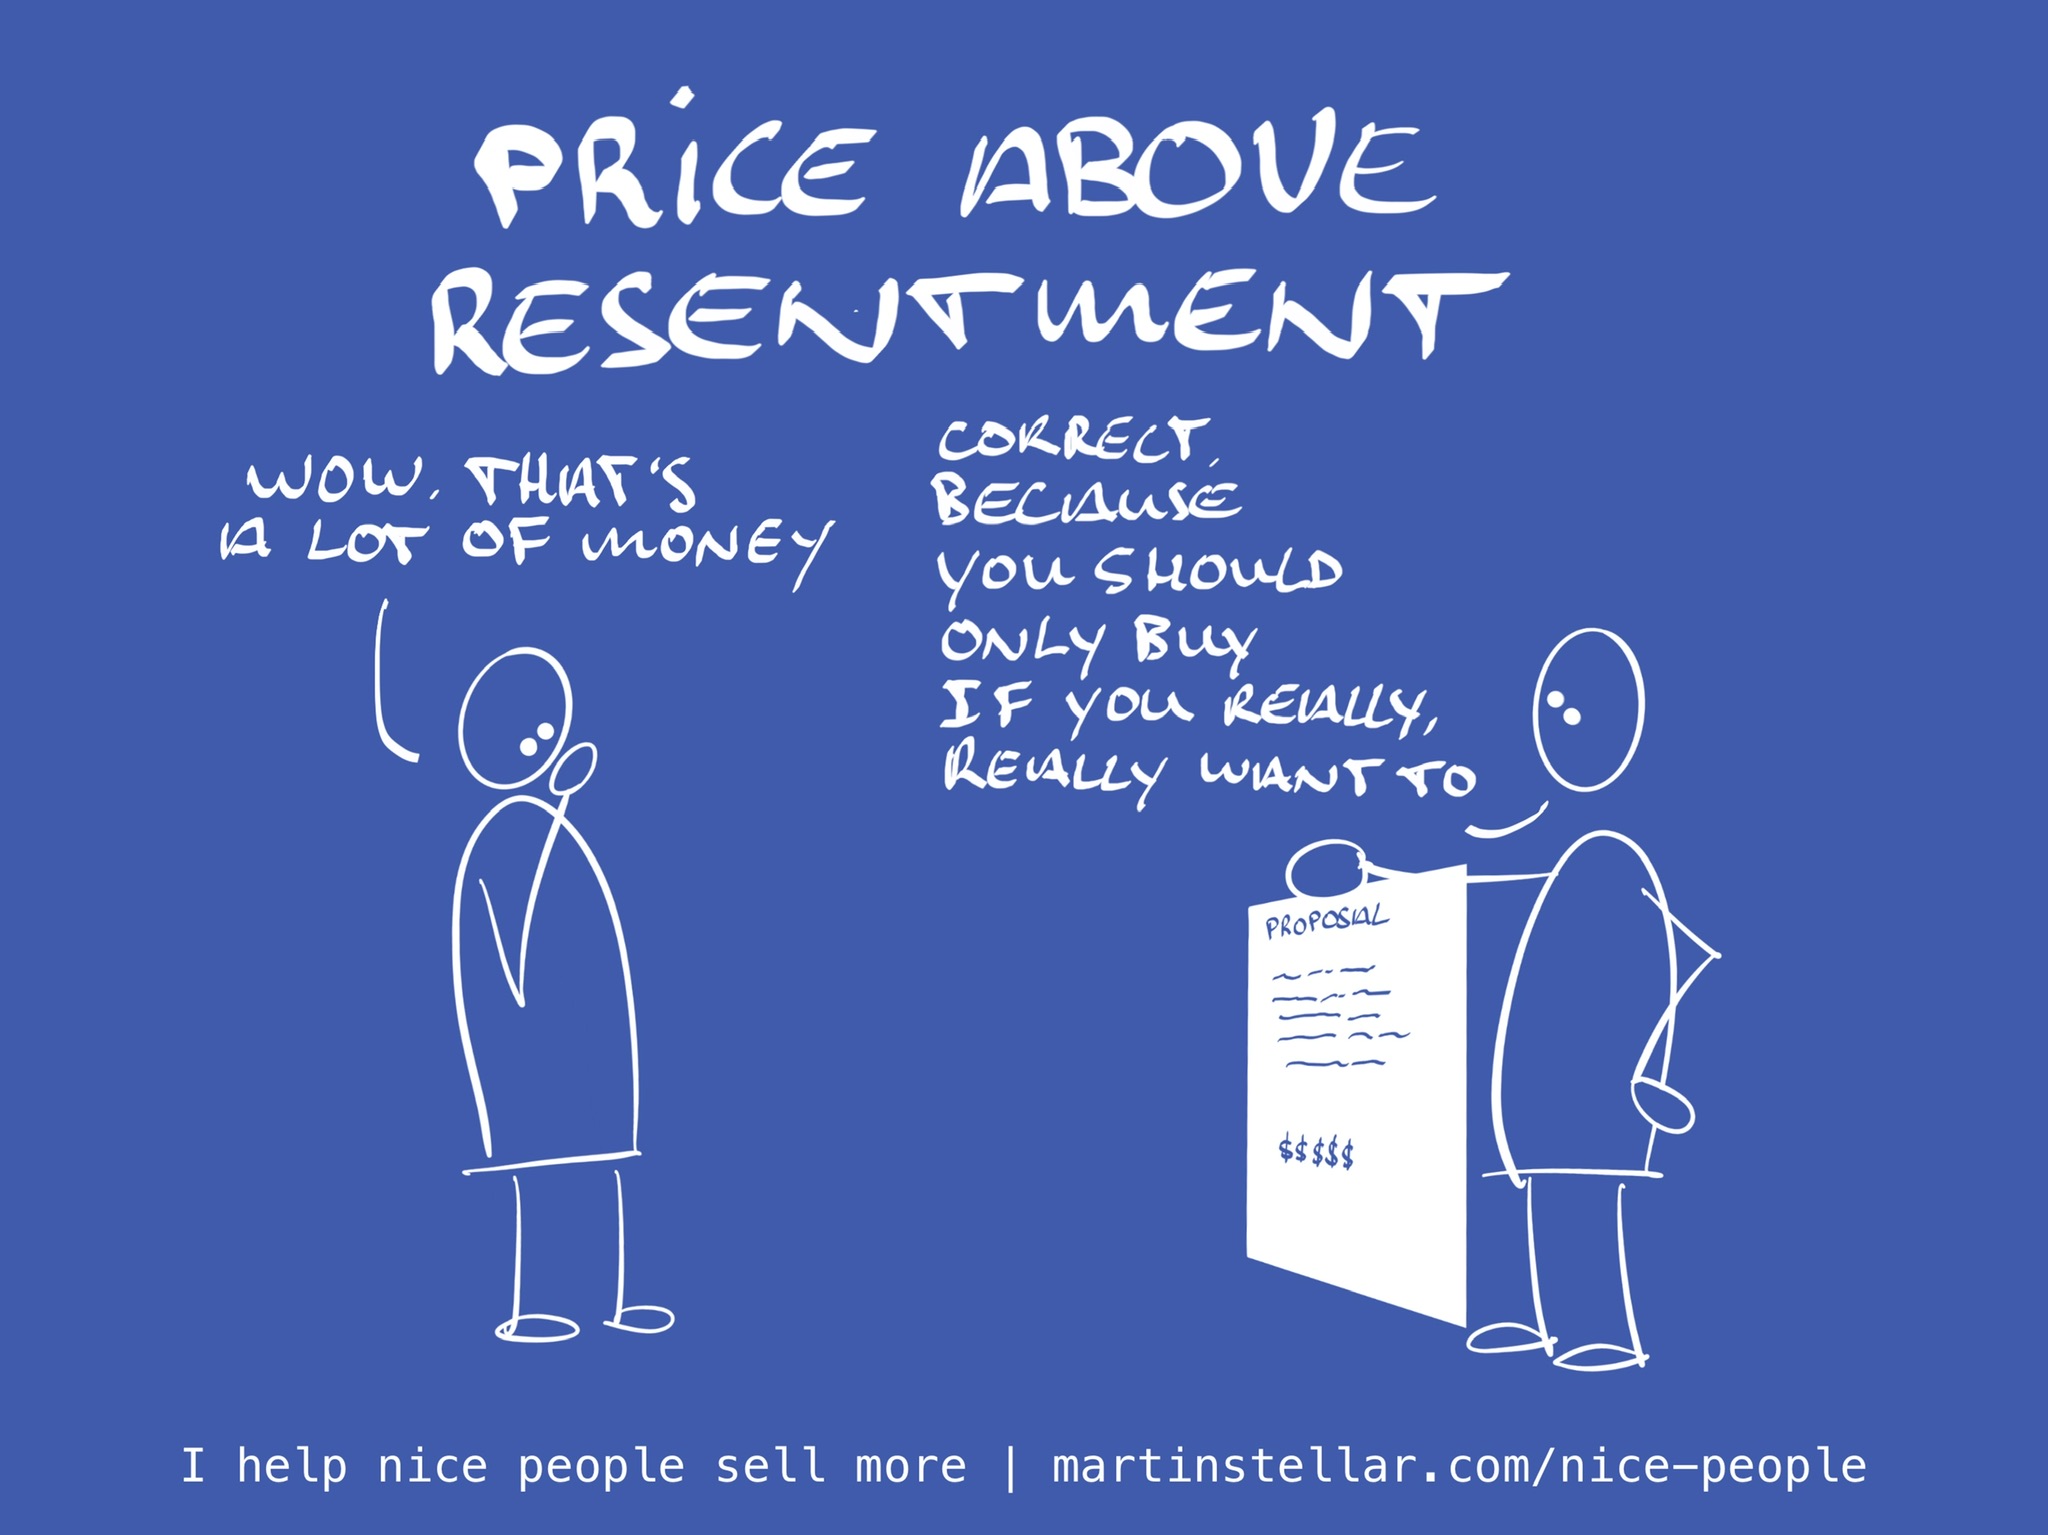 PRiCE ABOVE
RESENTMENT
WOW. THAT'S
A LOT OF MONEY
CORRECT.
BECAUSE
YOU SHOULD
ONLY BUY
IF YOU REALLY,
REALLY WANT TO
PROPOSAL
$$$$$
I help nice people sell more | martinstellar.com/nice-people